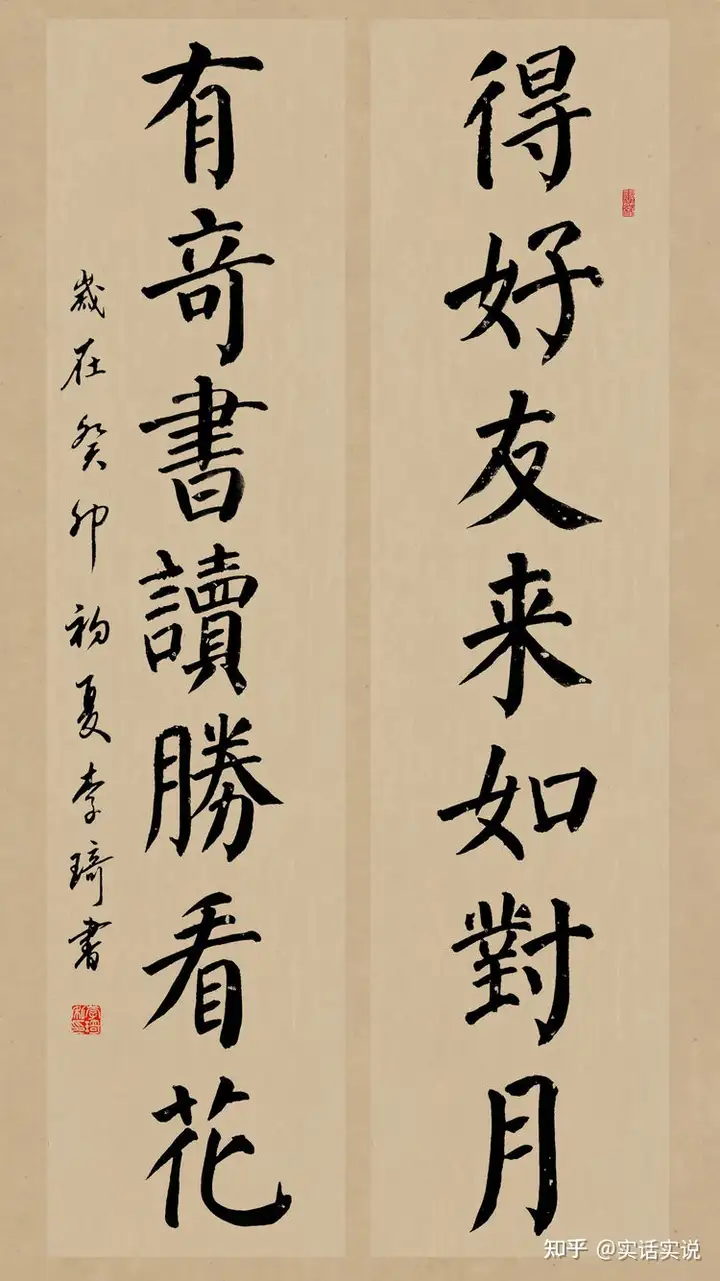 得好友来如對月
有奇書讀勝看花
歲在癸卯初夏李琦書
知乎 @实话实说